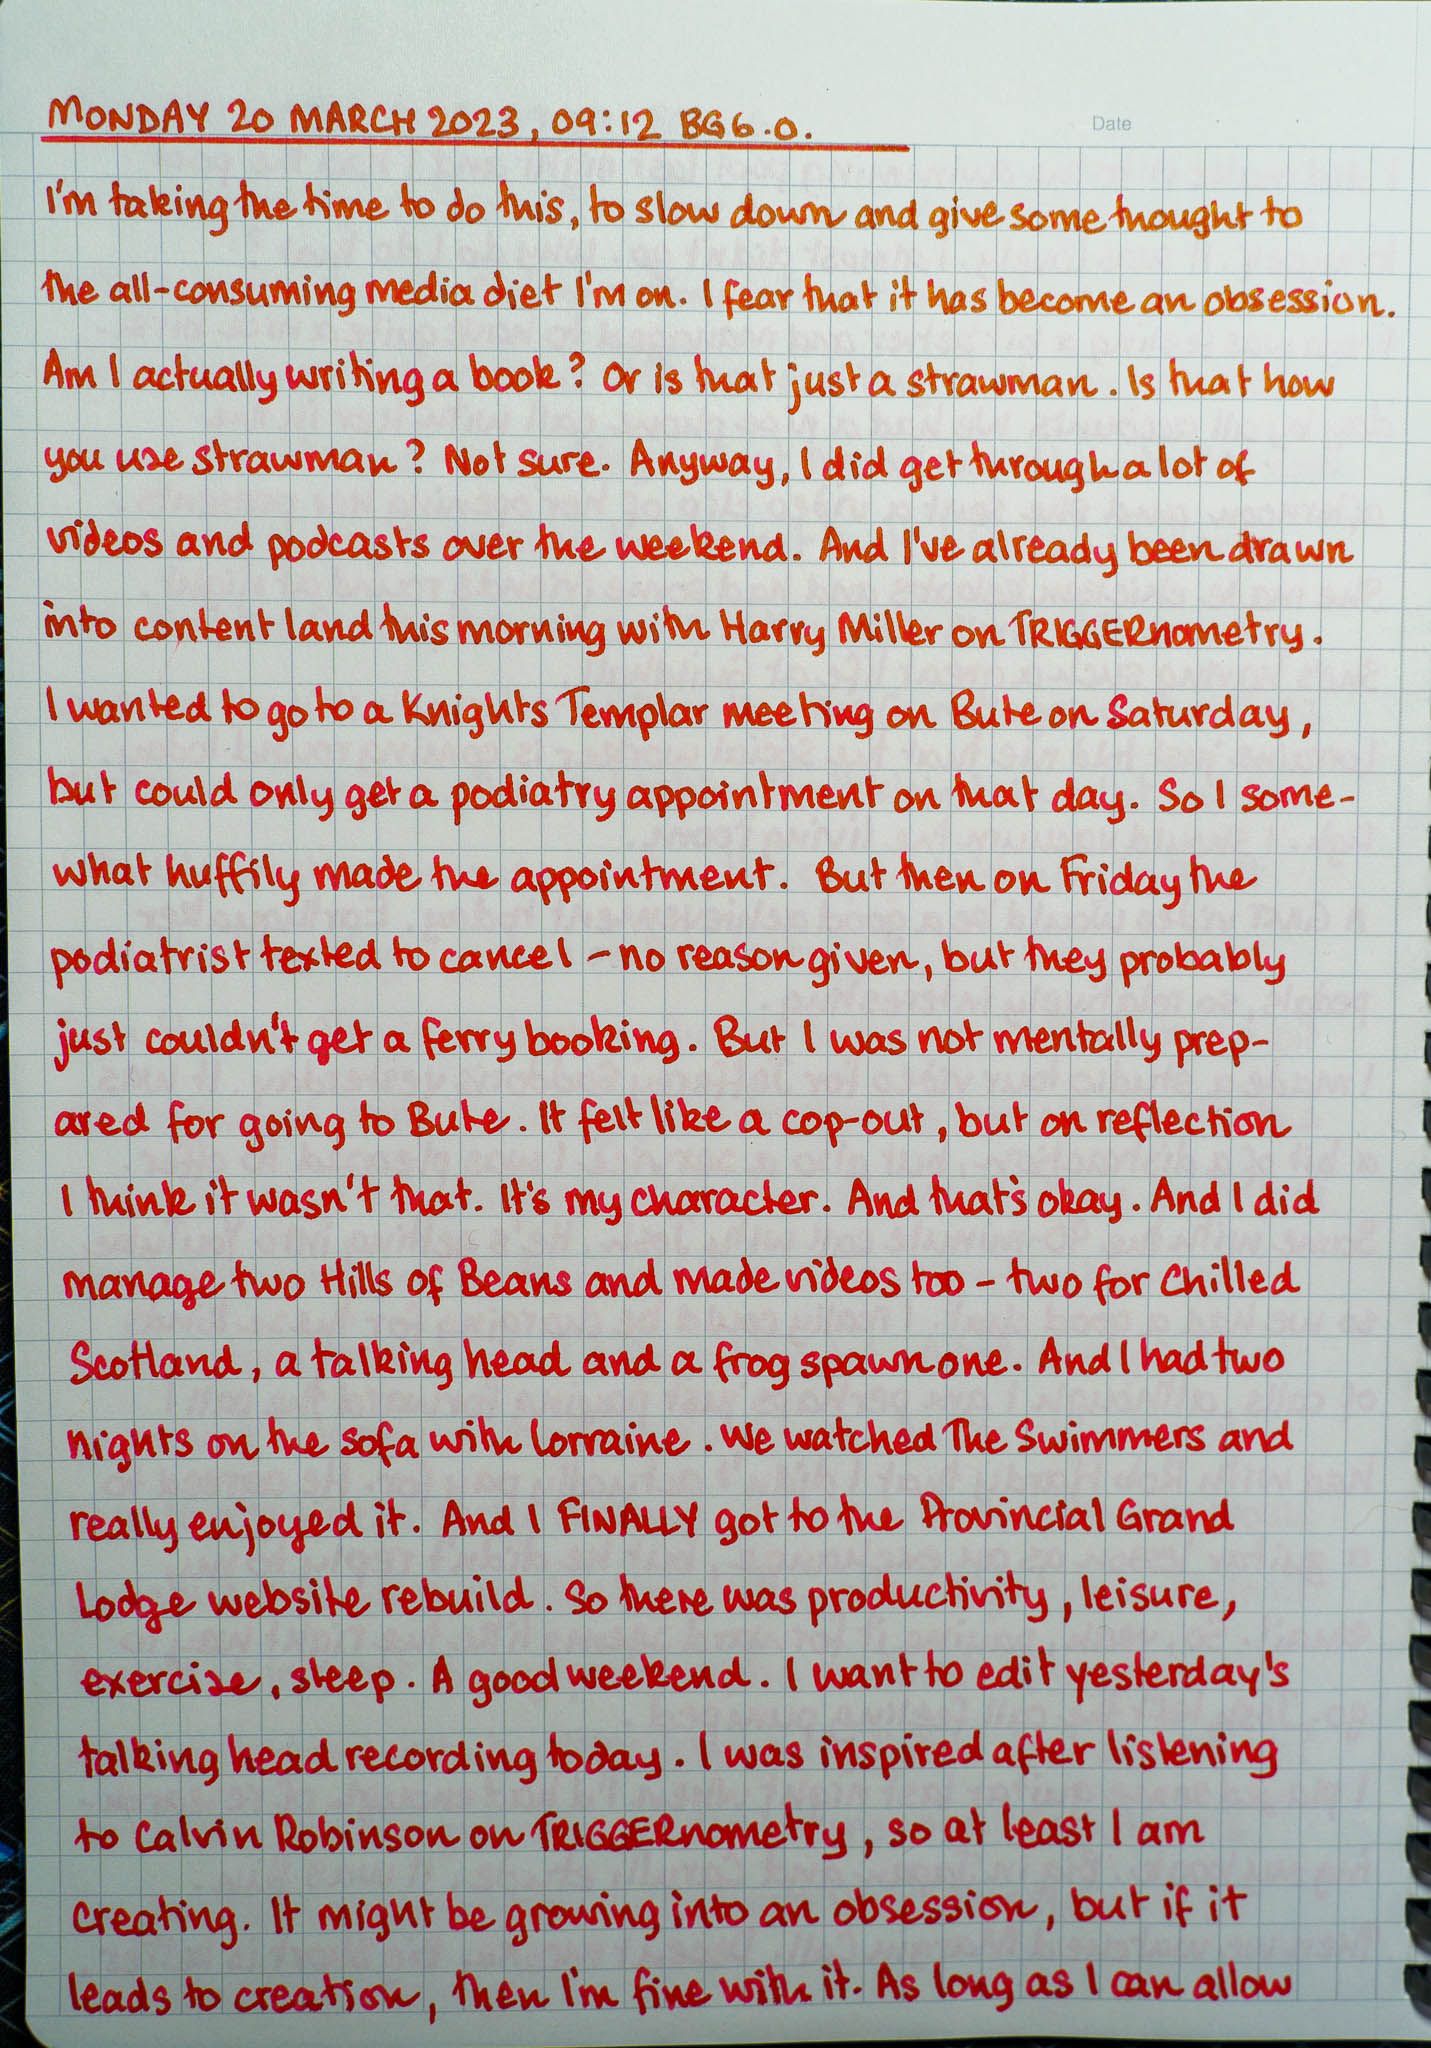 MONDAY 20 MARCH 2023, 09:12 BG6.0.
Date
I'm taking the time to do this, to slow down and give some thought to
the all-consuming media diet I'm on. I fear that it has become an obsession.
Am I actually writing a book? Or is that just a strawman. Is that how
you use strawman? Not sure. Anyway, I did get through a lot of
videos and podcasts over the weekend. And I've already been drawn
into content land this morning with Harry Miller on TRIGGERnometry.
I wanted to go to a Knights Templar meeting on Bute on Saturday,
but could only get a podiatry appointment on that day. So I some-
what huffily made the appointment. But then on Friday the
podiatrist texted to cancel – no reason given, but they probably
just couldn't get a ferry booking. But I was not mentally prep-
ared for going to Bute. It felt like a cop-out, but on reflection
I think it wasn't that. It's my character. And that's okay. And I did
manage two Hills of Beans and made videos too – two for Chilled
Scotland, a talking head and a frog spawn one. And I had two
nights on the sofa with Lorraine. We watched The Swimmers and
really enjoyed it. And I FINALLY got to the Provincial Grand
Lodge website rebuild. So there was productivity, leisure,
exercise, sleep. A good weekend. I want to edit yesterday's
talking head recording today. I was inspired after listening
to Calvin Robinson on TRIGGERnometry, so at least I am
creating. It might be growing into an obsession, but if it
leads to creation, then I'm fine with it. As long as I can allow